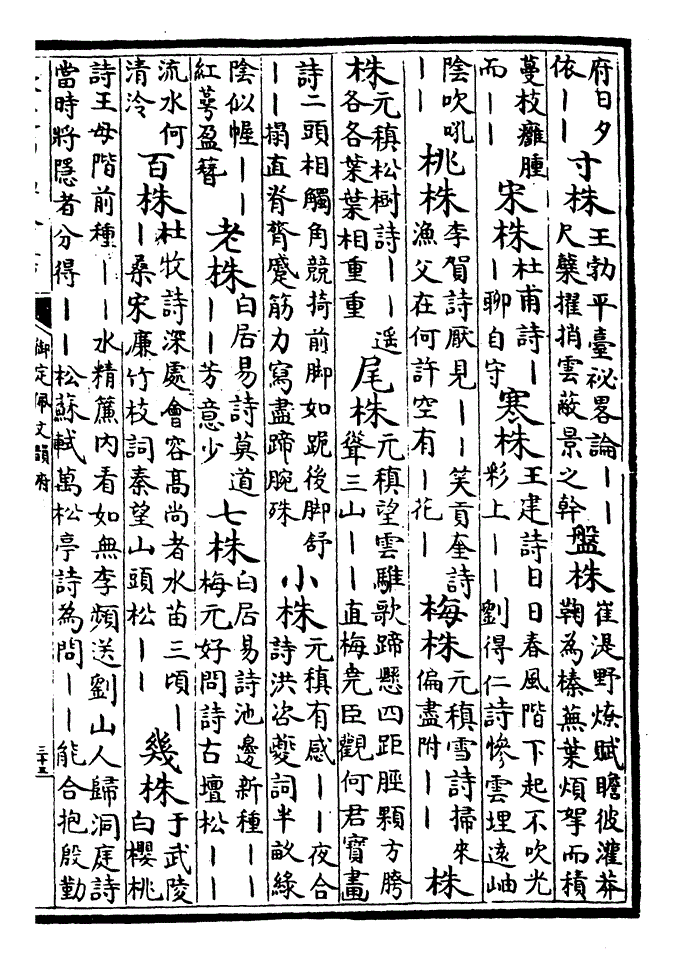 府日夕依——寸株王勃平臺祕畧論——尺蘖擢捎雲蔽景之幹盤株崔湜野燎賦瞻彼灌莽鞠為榛蕪葉煩挐而積
蔓枝癰腫而——宋株杜甫詩——聊自守寒株王建詩日日春風階下起不吹光彩上——劉得仁詩慘雲埋遠岫
陰吹吼——桃株李賀詩厭見——笑貢奎詩漁父在何許空有—花—梅株元稹雪詩掃來偏盡附——株
株元稹松樹詩——遥各各葉葉相重重尾株元稹望雲騅歌蹄懸四距腄顆方胯聳三山——直梅堯臣觀何君寶畫
詩二頭相觸角競掎前脚如跪後脚舒——搨直脊膂蹙筋力寫盡蹄腕殊小株元稹有感——夜合詩洪咨夔詞半畝綠
陰似幄——紅萼盈簪老株白居易詩莫道——芳意少七株白居易詩池邊新種——梅元好問詩古壇松——
流水何清泠百株杜牧詩深處會容髙尚者水苗三頃——桑宋廉竹枝詞秦望山頭松——幾株于武陵白櫻桃
詩王母階前種——水精簾内看如無李頻送劉山人歸洞庭詩當時將隱者分得——松蘇軾萬松亭詩為問——能合抱殷勤
御定佩文韻府
三十五